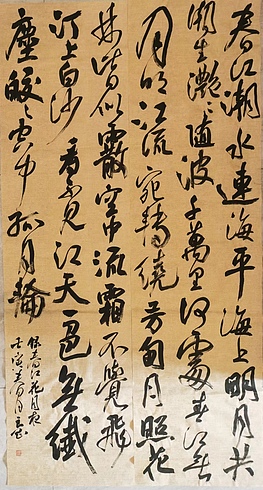 春江潮水連海平海上明月共
潮生灩〻隨波千萬里何處春江無
月明江流宛轉繞芳甸月照花
林皆似霰空中流霜不覺飛
汀上白沙看不見江天一色無纖
塵皎〻空中孤月輪
錄春江花月夜
壬寅